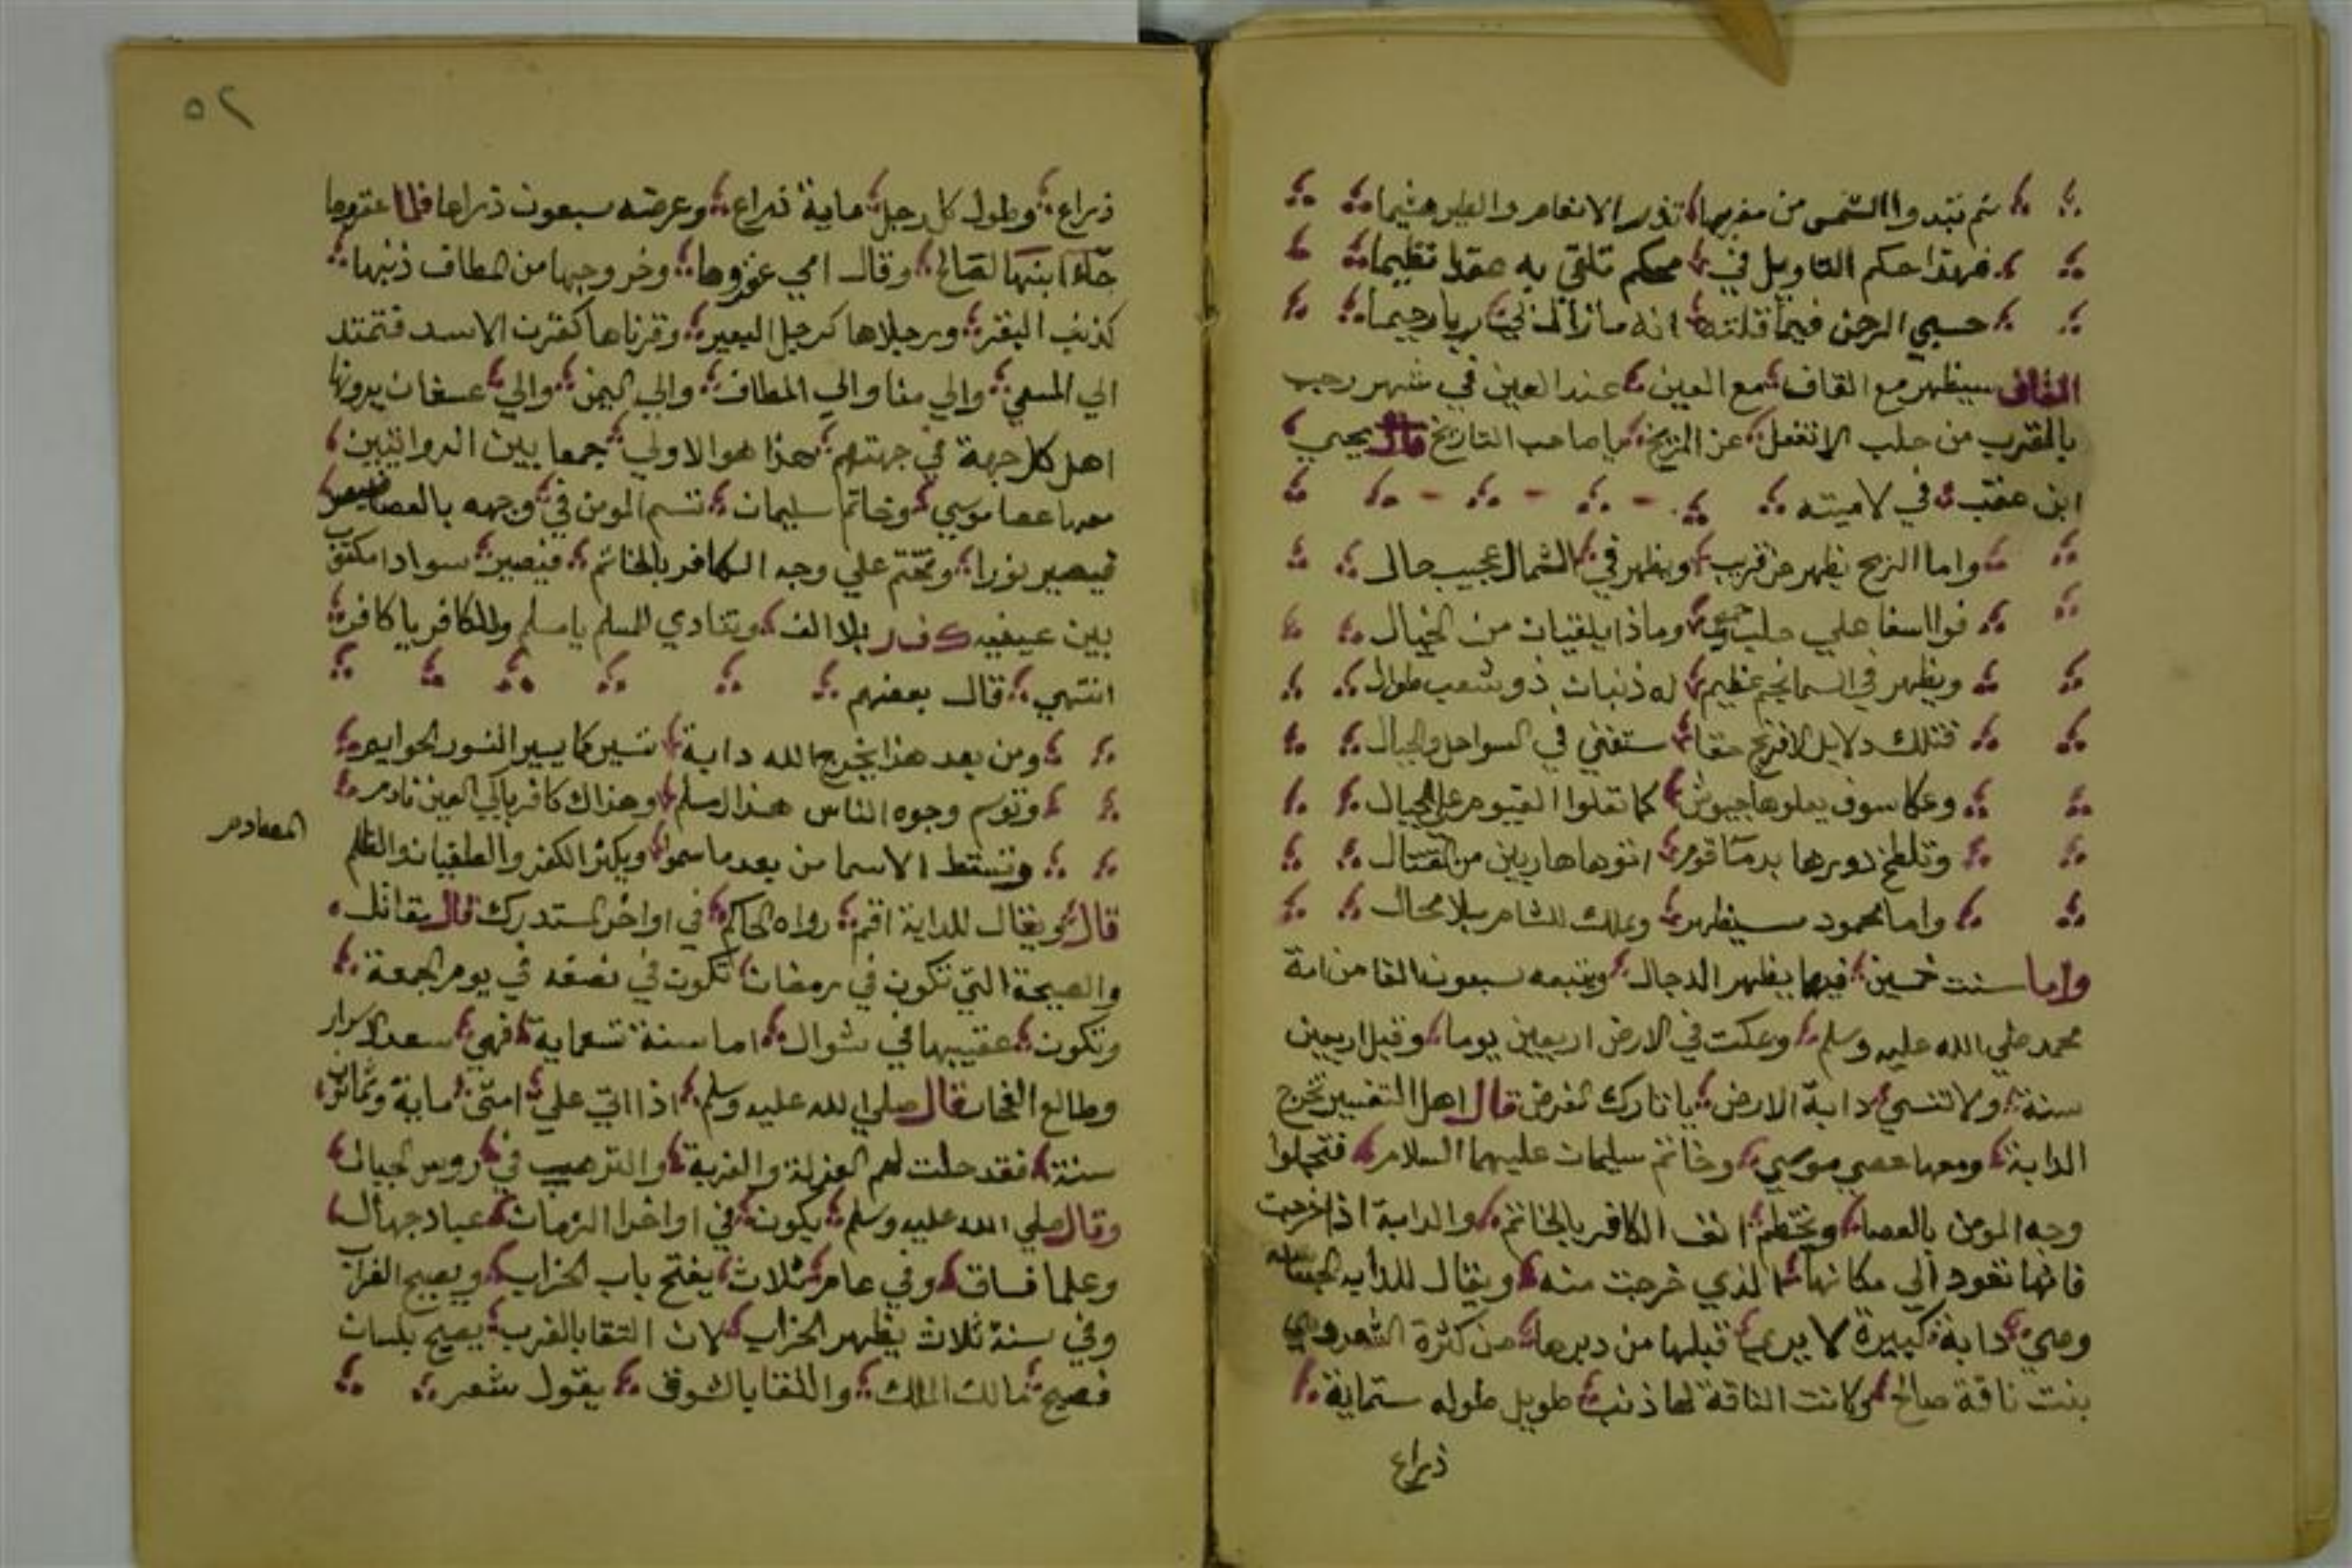 ثم تبدوا الشمس من مغربها تذر الانعام والطير هشيما
فهذا حكم التاويل في محكم تلقي به عقدا نظيما
حسبي الرحمن فيما قلته انه مازال لي ربا رحيما
القاف سيظهر مع القاف مع العين عند العين في شهر رجب
بالقرب من حلب لا تغفل عن المريخ يا صاحب التاريخ قال يحيي
ابن عقب في لاميته
واما الريح يظهر عن قريب ويظهر في الشمال عجيب حال
فوااسفا علي حلب وماذا يلقيان من الخبال
ويظهر في السما نجم عظيم له ذنبان ذو شعب طوال
فتلك دلايل الافرنج حقا ستفني في السواحل والجبال
وعكا سوف يعلوها جيوش كما تعلوا الغيوم علي الجبال
وتلطخ دورها بدما قوم اتوها هاربين من القتال
واما محمود سيظهر ويملك للشام بلا محال
واما سنت خمسين فيها يظهر الدجال ويتبعه سبعون الفا من امة
محمد صلي الله عليه وسلم ويمكث في الارض اربعين يوما وقيل اربعين
سنة ولا تنسي دابة الارض يا تارك الفرض قال اهل التفسير تخرج
الدابة ومعها عصي موسي وخاتم سليمان عليهما السلام فتجلوا
وجه المومن بالعصا وتختم انف الكافر بالخاتم والدابة اذا خرجت
فانها تعود الي مكانها الذي خرجت منه ويقال للدابه الجساسه
وهي دابة كبيرة لا يري قبلها من دبرها من كثرة الشعر وهي
بنت ناقة صالح وكانت الناقة لها ذنب طويل طوله ستماية
ذراع
٥٢
ذراع وطول كل رجل ماية ذراع وعرضه سبعون ذراعا فلما عقروها
جاء ابنها لصالح وقال امي عقروها وخروجها من المطاف ذنبها
كذنب البقر ورجلاها كرجل البعير وقرناها كقرن الاسد فتمتد
الي المسعي والي منا والي المطاف والي اليمن والي عسفان يرونها
اهل كل جهة في جهتهم هذا هو الاولي جمعا بين الروايتين
معها عصا موسي وخاتم سليمان تسم المومن في وجهه بالعصا
فيصير نورا وتختم علي وجه الكافر بالخاتم فيصير سوادا مكتوب
بين عينيه ك ف ر بلا الف وتنادي المسلم يا مسلم والكافر يا كافر
انتهي قال بعضهم
ومن بعد هذا يخرج الله دابة تسير كما يسير النسور الحوايم
وتوسم وجوه الناس هذا مسلم وهذاك كافر باكي العين نادم
وتسقط الاسما من بعد ما سموا ويكثر الكفر والطغيان والظلم
المصادم
قال ويقال للدابة اقتم رواه الحاكم في اواخر المستدرك قال مقاتل
والصيحة التي تكون في رمضان تكون في نصفه في يوم الجمعة
وتكون عقيبها في شوال اما سنة تسعماية فهي سعد الاسرار
وطالع الفخار قال صلي الله عليه وسلم اذا اتي علي امتي ماية وثمانون
سنة فقد حلت لهم العزلة والغربة والترهيب في روس الجبال
وقال صلي الله عليه وسلم يكون في اواخر الزمان عباد جهال
وعلما فساق وفي عام ثلاث يفتح باب الخراب ويصيح الغراب
وفي سنة ثلاث يظهر الخراب لان التقا بالغرب يصيح بلسان
فصيح مالك الملك واللقا بالشوق يقول شعر